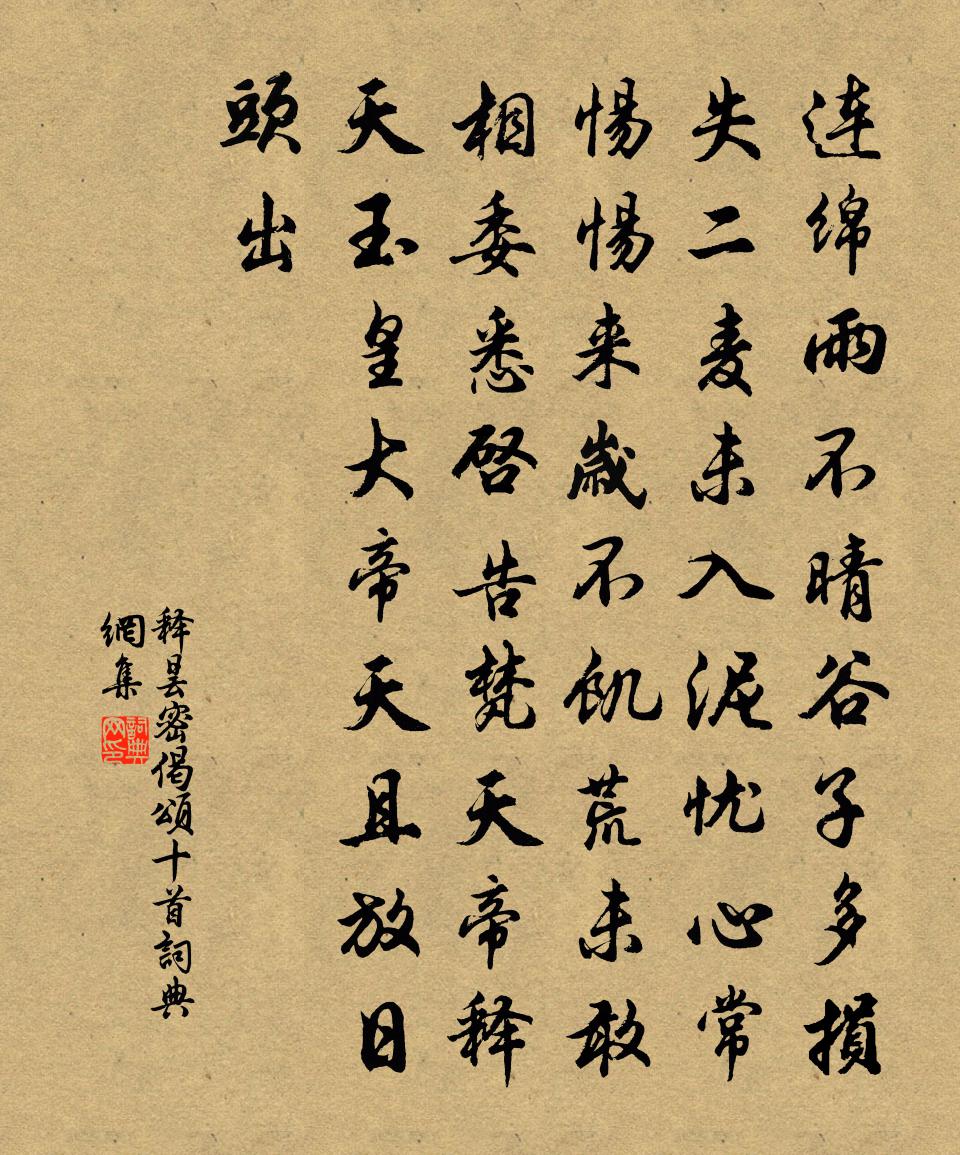 连绵雨不晴谷子多損
失二麦未入泥忧心常
惕惕来歲不飢荒未敢
相委悉啓告梵天帝释
天玉皇大帝天且放日
頭出
释昙密偈頌十首詞典
網集
詞典
网印